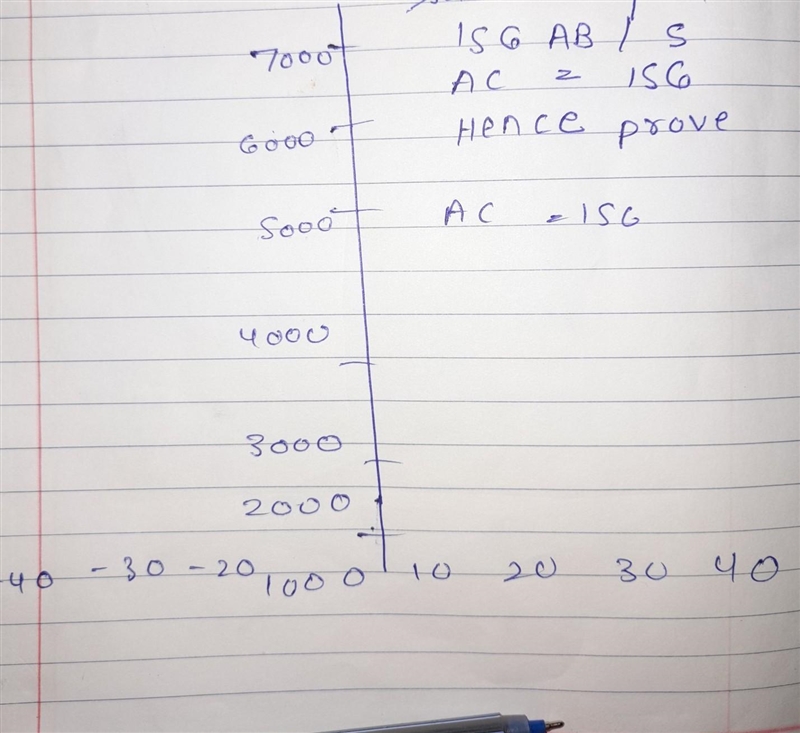 7000 ISG AB / S
AC = ISG
6000 Hence prove
5000 AC = ISG
4000
3000
2000
40 -30 -20 1000 0 10 20 30 40